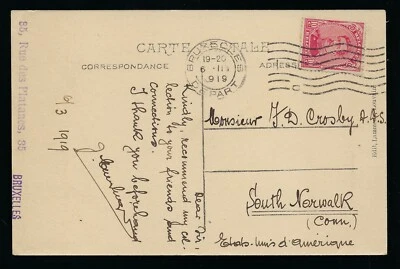 CARTE POSTALE
CORRESPONDANCE
ADRESSE
BRUXELLES
19-20
6 III
1919
DEPART
35, Rue des Platanes, 35
BRUXELLES
6/3 1919
Dear Sir,
Kindly recommend my col-
lection by your friends and
connections.
I thank you beforehand
Monsieur F. D. Crosby A.P.S.
South Norwalk
(Conn.)
Etats-Unis d'Amérique